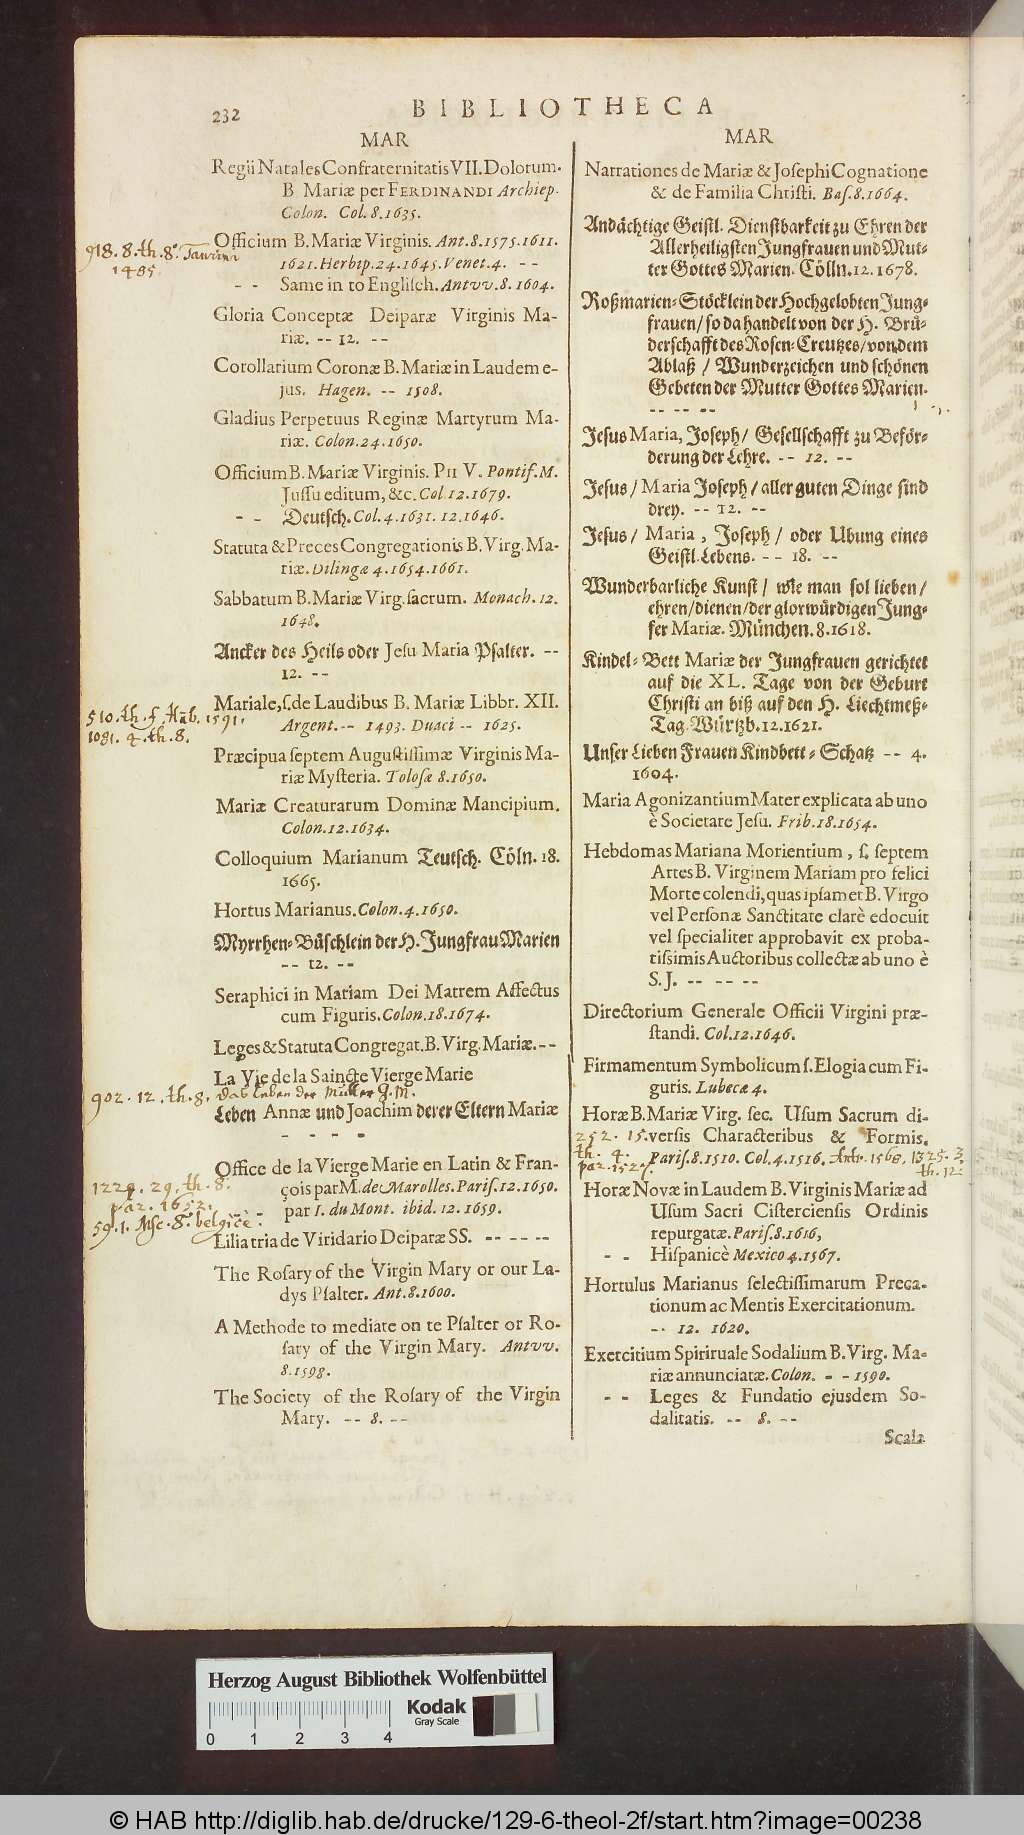 232
BIBLIOTHECA
MAR
Regii Natales Confraternitatis VII. Dolorum.
B Mariæ per FERDINANDI Archiep.
Colon. Col. 8. 1635.
918. 8. th. 8°. Taurini
1485.
Officium B. Mariæ Virginis. Ant. 8. 1575. 1611.
1621. Herbip. 24. 1645. Venet. 4. - -
- - Same in to Englisch. Antvv. 8. 1604.
Gloria Conceptæ Deiparæ Virginis Ma-
riæ. -- 12. --
Corollarium Coronæ B. Mariæ in Laudem e-
jus. Hagen. -- 1508.
Gladius Perpetuus Reginæ Martyrum Ma-
riæ. Colon. 24. 1650.
Officium B. Mariæ Virginis. PII V. Pontif. M.
Jussu editum, &c. Col. 12. 1679.
- - Deutsch. Col. 4. 1631. 12. 1646.
Statuta & Preces Congregationis B. Virg. Ma-
riæ. Dilingæ 4. 1654. 1661.
Sabbatum B. Mariæ Virg. sacrum. Monach. 12.
1648.
Ancker des Heils oder Jesu Maria Psalter. --
12. --
510. th. f. Hab. 1591.
1081. 4. th. 8.
Mariale, s. de Laudibus B. Mariæ Libbr. XII.
Argent. -- 1493. Duaci -- 1625.
Præcipua septem Augustissimæ Virginis Ma-
riæ Mysteria. Tolosæ 8. 1650.
Mariæ Creaturarum Dominæ Mancipium.
Colon. 12. 1634.
Colloquium Marianum Teutsch. Cöln. 18.
1665.
Hortus Marianus. Colon. 4. 1650.
Myrrhen-Büschlein der H. Jungfrau Marien
-- 12. --
Seraphici in Mariam Dei Matrem Affectus
cum Figuris. Colon. 18. 1674.
Leges & Statuta Congregat. B. Virg. Mariæ. --
La Vie de la Saincte Vierge Marie
902. 12. th. 8. das Leben der Mutter G. M.
Leben Annæ und Joachim derer Eltern Mariæ
- - - -
Office de la Vierge Marie en Latin & Fran-
çois par M. de Marolles. Paris. 12. 1650.
1229. 29. th. 8.
par. 1652.
- - par I. du Mont. ibid. 12. 1659.
59. 1. Msc. 8°. belgicè.
Lilia tria de Viridario Deiparæ SS. -- -- --
The Rosary of the Virgin Mary or our La-
dys Psalter. Ant. 8. 1600.
A Methode to mediate on te Psalter or Ro-
sary of the Virgin Mary. Antvv.
8. 1598.
The Society of the Rosary of the Virgin
Mary. -- 8. --
MAR
Narrationes de Mariæ & Josephi Cognatione
& de Familia Christi. Bas. 8. 1664.
Andächtige Geistl. Dienstbarkeit zu Ehren der
Allerheiligsten Jungfrauen und Mut-
ter Gottes Marien. Cölln. 12. 1678.
Roßmarien-Stöcklein der Hochgelobten Jung-
frauen/ so da handelt von der H. Brü-
derschafft des Rosen-Creutzes/ von dem
Ablaß / Wunderzeichen und schönen
Gebeten der Mutter Gottes Marien.
-- -- --
Jesus Maria, Joseph/ Gesellschafft zu Beför-
derung der Lehre. -- 12. --
Jesus / Maria Joseph / aller guten Dinge sind
drey. -- 12. --
Jesus / Maria , Joseph / oder Ubung eines
Geistl. Lebens. -- 18. --
Wunderbarliche Kunst / wie man sol lieben /
ehren / dienen / der glorwürdigen Jung-
fer Mariæ. München. 8. 1618.
Kindel-Bett Mariæ der Jungfrauen gerichtet
auf die XL. Tage von der Geburt
Christi an biß auf den H. Liechtmeß-
Tag. Würtzb. 12. 1621.
Unser Lieben Frauen Kindbett-Schatz -- 4.
1604.
Maria Agonizantium Mater explicata ab uno
è Societate Jesu. Frib. 18. 1654.
Hebdomas Mariana Morientium, s. septem
Artes B. Virginem Mariam pro felici
Morte colendi, quas ipsamet B. Virgo
vel Personæ Sanctitate clarè edocuit
vel specialiter approbavit ex proba-
tissimis Auctoribus collectæ ab uno è
S. J. -- -- --
Directorium Generale Officii Virgini præ-
standi. Col. 12. 1646.
Firmamentum Symbolicum s. Elogia cum Fi-
guris. Lubecæ 4.
Horæ B. Mariæ Virg. sec. Usum Sacrum di-
252. 15.
versis Characteribus & Formis.
th. 4.
par. 1527.
Paris. 8. 1510. Col. 4. 1516. Antv. 1568. 1325. 3.
th. 12.
Horæ Novæ in Laudem B. Virginis Mariæ ad
Usum Sacri Cisterciensis Ordinis
repurgatæ. Paris. 8. 1616,
- - Hispanicè Mexico 4. 1567.
Hortulus Marianus selectissimarum Preca-
tionum ac Mentis Exercitationum.
-- 12. 1620.
Exercitium Spirituale Sodalium B. Virg. Ma-
riæ annunciatæ. Colon. - - 1590.
- - Leges & Fundatio ejusdem So-
dalitatis. -- 8. --
Scala
Herzog August Bibliothek Wolfenbüttel
Kodak
Gray Scale
0 1 2 3 4
© HAB http://diglib.hab.de/drucke/129-6-theol-2f/start.htm?image=00238